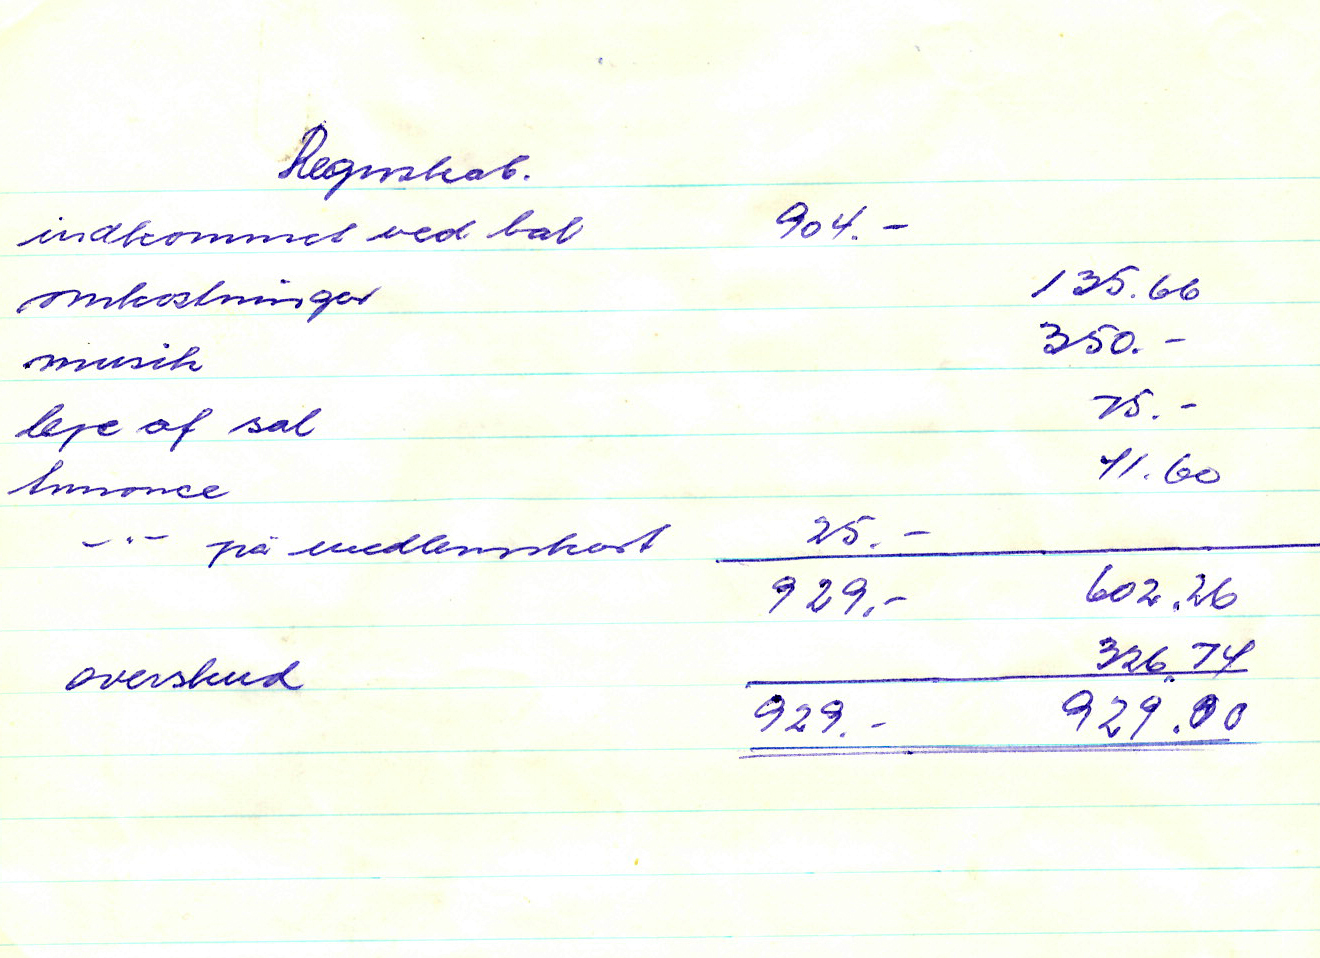 Regnskab.
indkommet ved bal 904.-
omkostninger 135.66
musik 350.-
leje af sal 75.-
Annonce 41.60
-"- på medlemskort 25.-
929,- 602.26
overskud 326.74
929.- 929.00